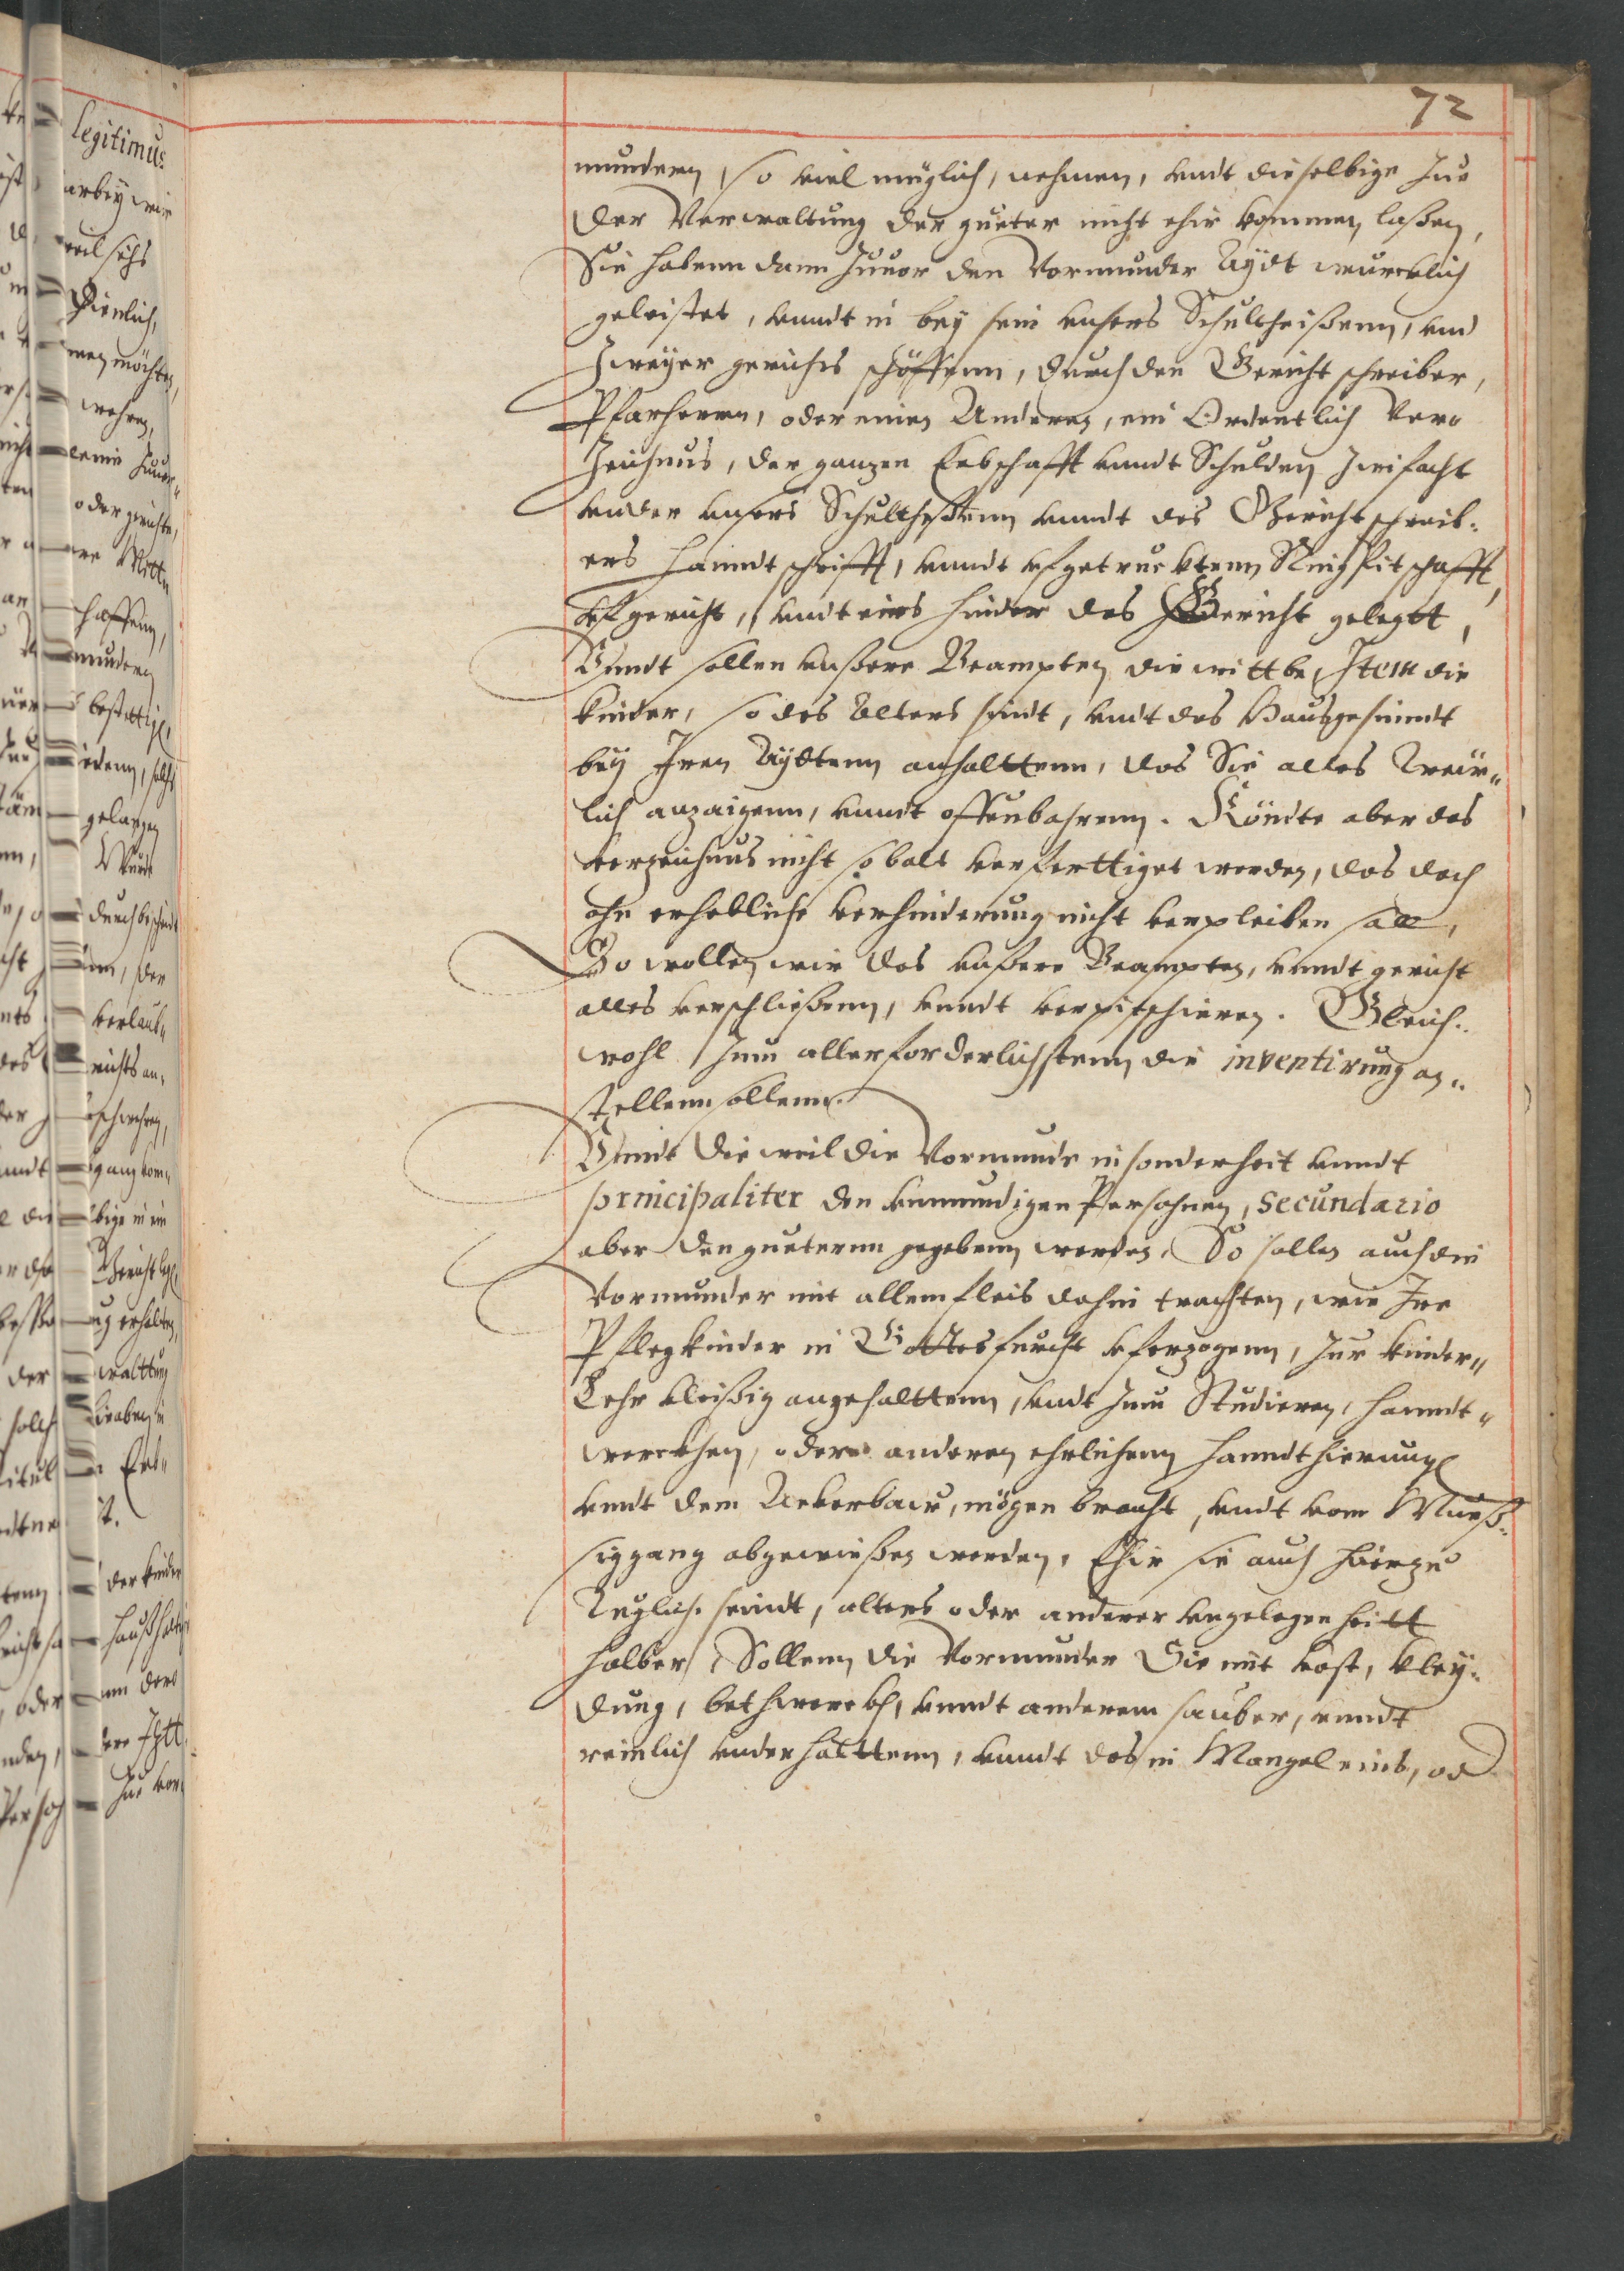 72
mundern, so viel müglich, nehmen, vndt dieselbige zue
der Verwaltung der gueter nicht ehir kommen laßen,
Sie habenn dann zuuor den Vormunder Aÿdt wurcklich
geleistet, vnndt in beÿ sein vnsers Schultheißenn, vnd
zweÿer gerichts schöffenn, durch den Gericht schreiber,
Pfarherrn, oder einen Anderen, ein Ordentlich Ver-
zeichnus, der ganzen Erbschafft vnndt Schulden zwifacht
vnder vnsers Schultheßenn vnndt des Gerichtschreib-
ers Hanndtschrifft, vnndt vfgetrucktenn Ring Pitschafft,
vfgericht, vndt eins hinder das Gericht gelegtt,
Vnndt sollen vnßere Beampten die wittbe, Item die
kinder, so des Alters sindt, vndt das Hausgesinndt
beÿ Iren Aÿdtenn anhalttenn, das Sie alles Treüw-
lich anzaigenn, vnndt offenbahrenn. Köndte aber das
verzeichnus nicht so balt verferttiget werden, das doch
ohn erhebliche verhinderung nicht verpleiben soll,
So wollen wir das vnßere Beampten, vnndt gericht
alles verschließenn, vnndt verpitschieren. Gleich-
wohl zum allerforderlichstenn die inventirung an-
stellenn sollenn.
Vnndt die weil die Vormundt in sonderheit vnndt
principaliter den vnmundigen Persohnen, secundario
aber den gueternn gegebenn werden, So sollen auch die
Vormunder mit allem fleis dahin trachten, wie Ire
Pflegkinder in Gottes furcht vferzogenn, zur kinder-
Lehr vleißig angehalttenn, vndt zum Studieren, Hanndt-
werckhen, oder anderen ehrlichenn Hanndthierung
vnndt dem Ackerbaw, mögen bracht, vndt vom Mueß-
siggang abgewießen werden, Ehir sie auch hierzu
Tuglich seindt, alters oder anderer vngelegenheitt
halber, Sollenn die Vormunder Sie mit kost, kleÿ-
dung, bethwerckh, vnndt anderem sauber, vnndt
reinlich vnderhalttenn, vnndt das in Mangel eins, od